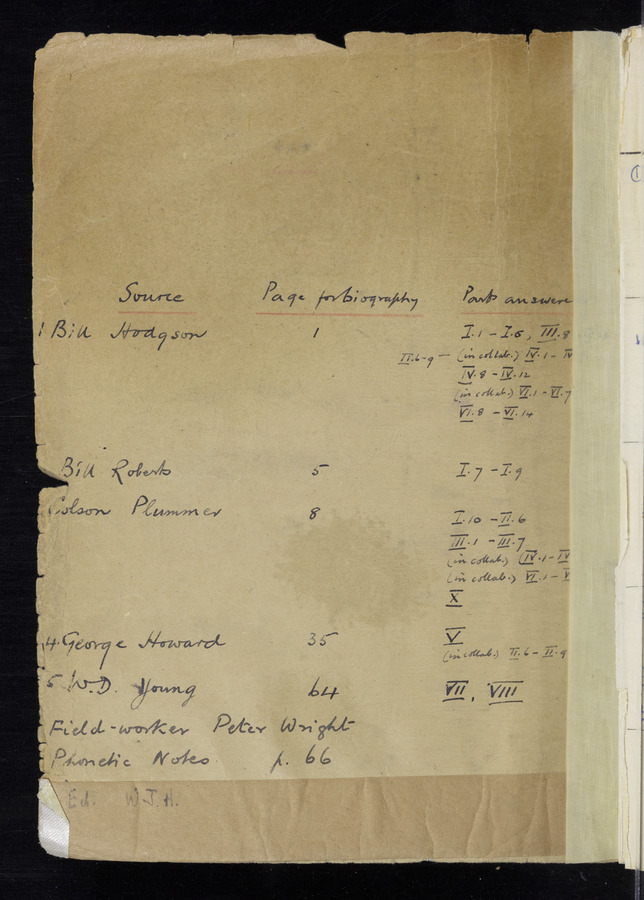 Source Page for biography Parts answere
1 Bill Hodgson 1 I.1 - I.6, III.8
II.6-9 - (in collab.) IV.1 - IV
IV.8 - IV.12
(in collab.) VI.1 - VI.7
VI.8 - VI.14
Bill Roberts 5 I.7 - I.9
Colson Plummer 8 I.10 - II.6
III.1 - III.7
(in collab.) (IV.1 - IV
(in collab.) VI.1 - V
X
4. George Howard 35 V
(in collab.) II.6 - II.9
5 W.D. Young 64 VII, VIII
Field-worker Peter Wright
Phonetic Notes p. 66
Ed. W.J.H.